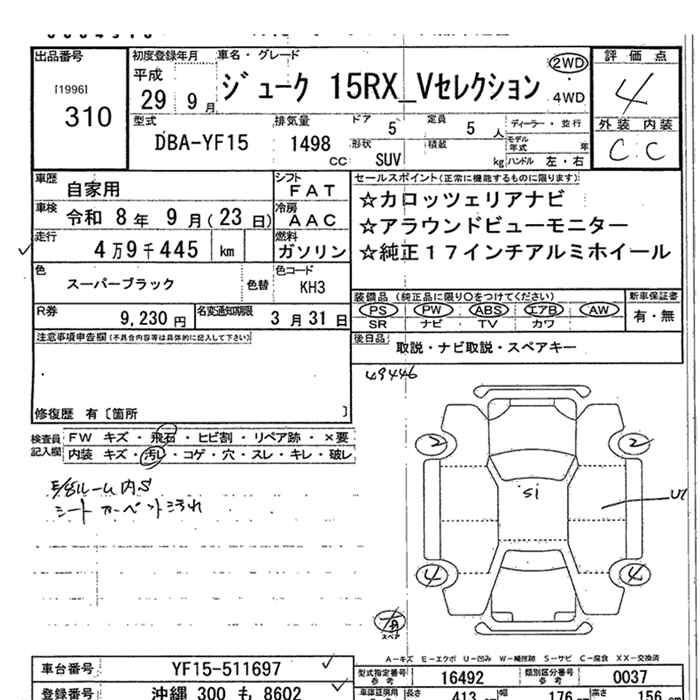 出品番号
[1996]
310
初度登録年月
平成
29 9 月
車名・グレード
ジューク 15RX_Vセレクション
2WD
4WD
評価点
4
外装 内装
C C
型式
DBA-YF15
排気量
1498
CC
ドア
5
定員
5 人
形状
SUV
積載
kg
ディーラー・並行
モデル年式 年
ハンドル 左・右
車歴
自家用
シフト
FAT
車検
令和 8 年 9 月(23 日)
冷房
AAC
走行
4 万 9 千 445 km
燃料
ガソリン
色
スーパーブラック
色替
色コード
KH3
R券
9,230 円
名変通知期限
3 月 31 日
セールスポイント(正常に機能するものに限ります)
☆カロッツェリアナビ
☆アラウンドビューモニター
☆純正17インチアルミホイール
装備品(純正品に限り○をつけてください)
PS PW ABS エアB AW
SR ナビ TV カワ
新車保証書
有・無
後日品
取説・ナビ取説・スペアキー
注意事項申告欄(不具合内容等は具体的に記入して下さい)
修復歴 有〔箇所 〕
検査員記入欄
FW キズ・飛石・ヒビ割・リペア跡・×要
内装 キズ・汚レ・コゲ・穴・スレ・キレ・破レ
シート カーペット汚れ
49446
2
2
S1
U1
4
4
スペア
A−キズ E−エクボ U−凹み W−補修跡 S−サビ C−腐食 XX−交換済
車台番号
YF15-511697
登録番号
沖縄 300 も 8602
型式指定番号
参考
16492
類別区分番号
参考
0037
長さ
413 cm
幅
176
高さ
156 cm